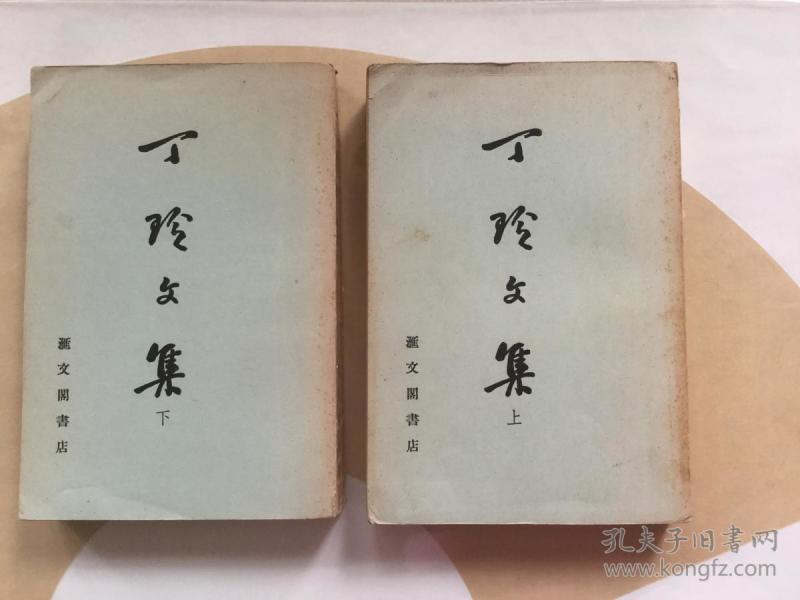 丁玲文集
下
滙文閣書店
丁玲文集
上
滙文閣書店
孔夫子旧書网
www.kongfz.com